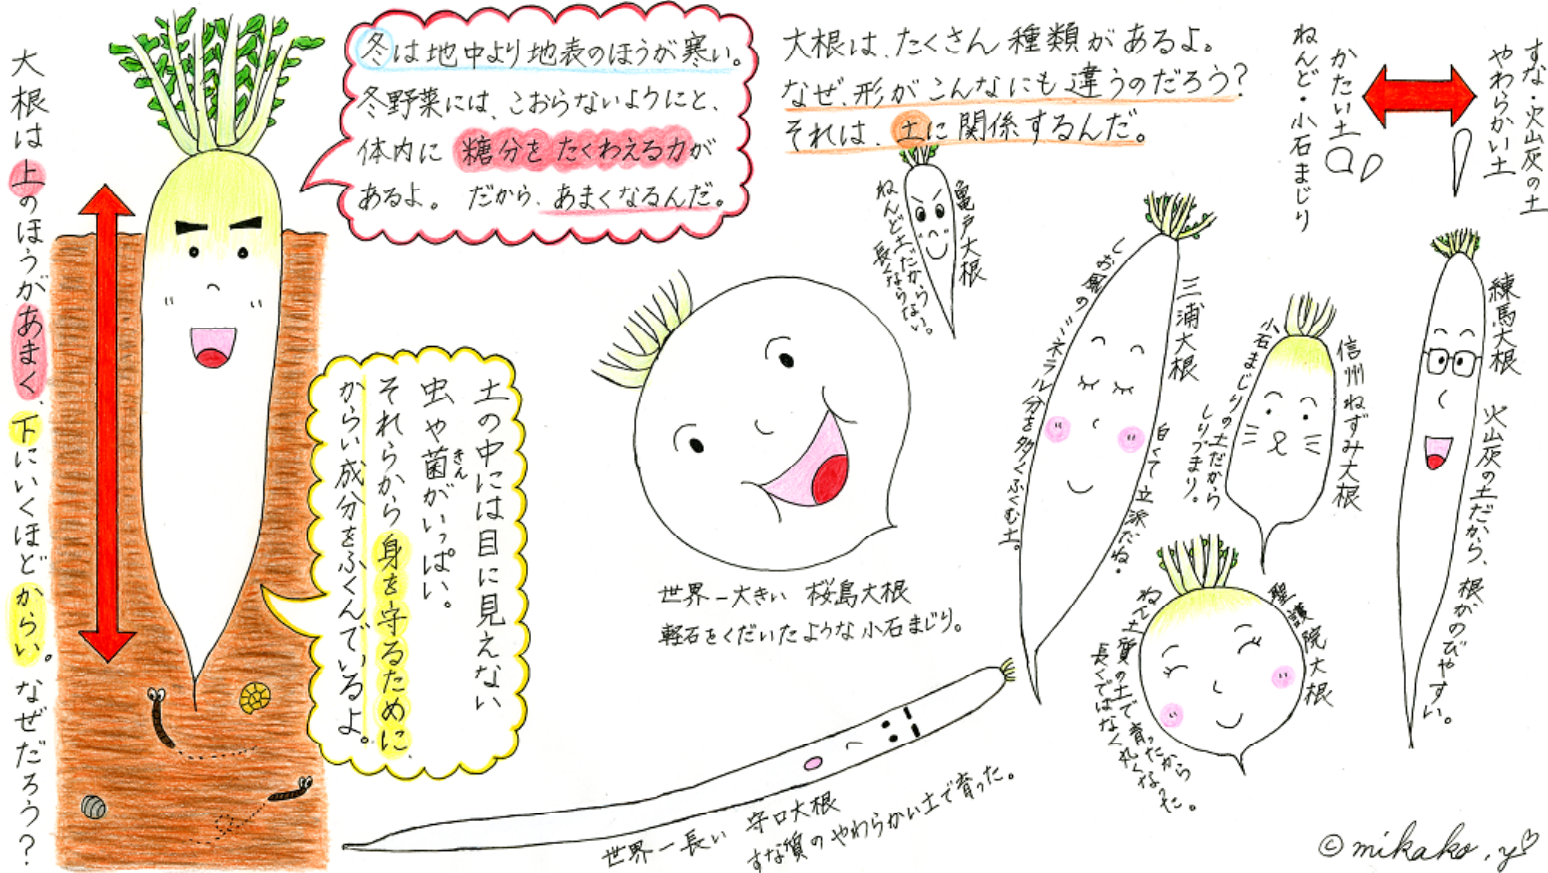 大根は上のほうがあまく、下にいくほどからい。なぜだろう?
冬は地中より地表のほうが寒い。
冬野菜には、こおらないようにと、
体内に糖分をたくわえる力が
あるよ。だから、あまくなるんだ。
土の中には目に見えない
虫や菌がいっぱい。
きん
それらから身を守るために、
からい成分をふくんでいるよ。
大根は、たくさん種類があるよ。
なぜ、形がこんなにも違うのだろう?
それは、土に関係するんだ。
すな・火山灰の土
やわらかい土
かたい土
ねんど・小石まじり
亀戸大根
ねんど土だから
長くならない。
三浦大根
白くて立派だね。
しお風のミネラル分を多くふくむ土。
信州ねずみ大根
小石まじりの土だから
しりづまり。
練馬大根
火山灰の土だから、根がのびやすい。
世界一大きい 桜島大根
軽石をくだいたような小石まじり。
聖護院大根
ねんど質の土で育ったから
長くではなく丸くなった。
世界一長い 守口大根
すな質のやわらかい土で育った。
©mikako.y♡